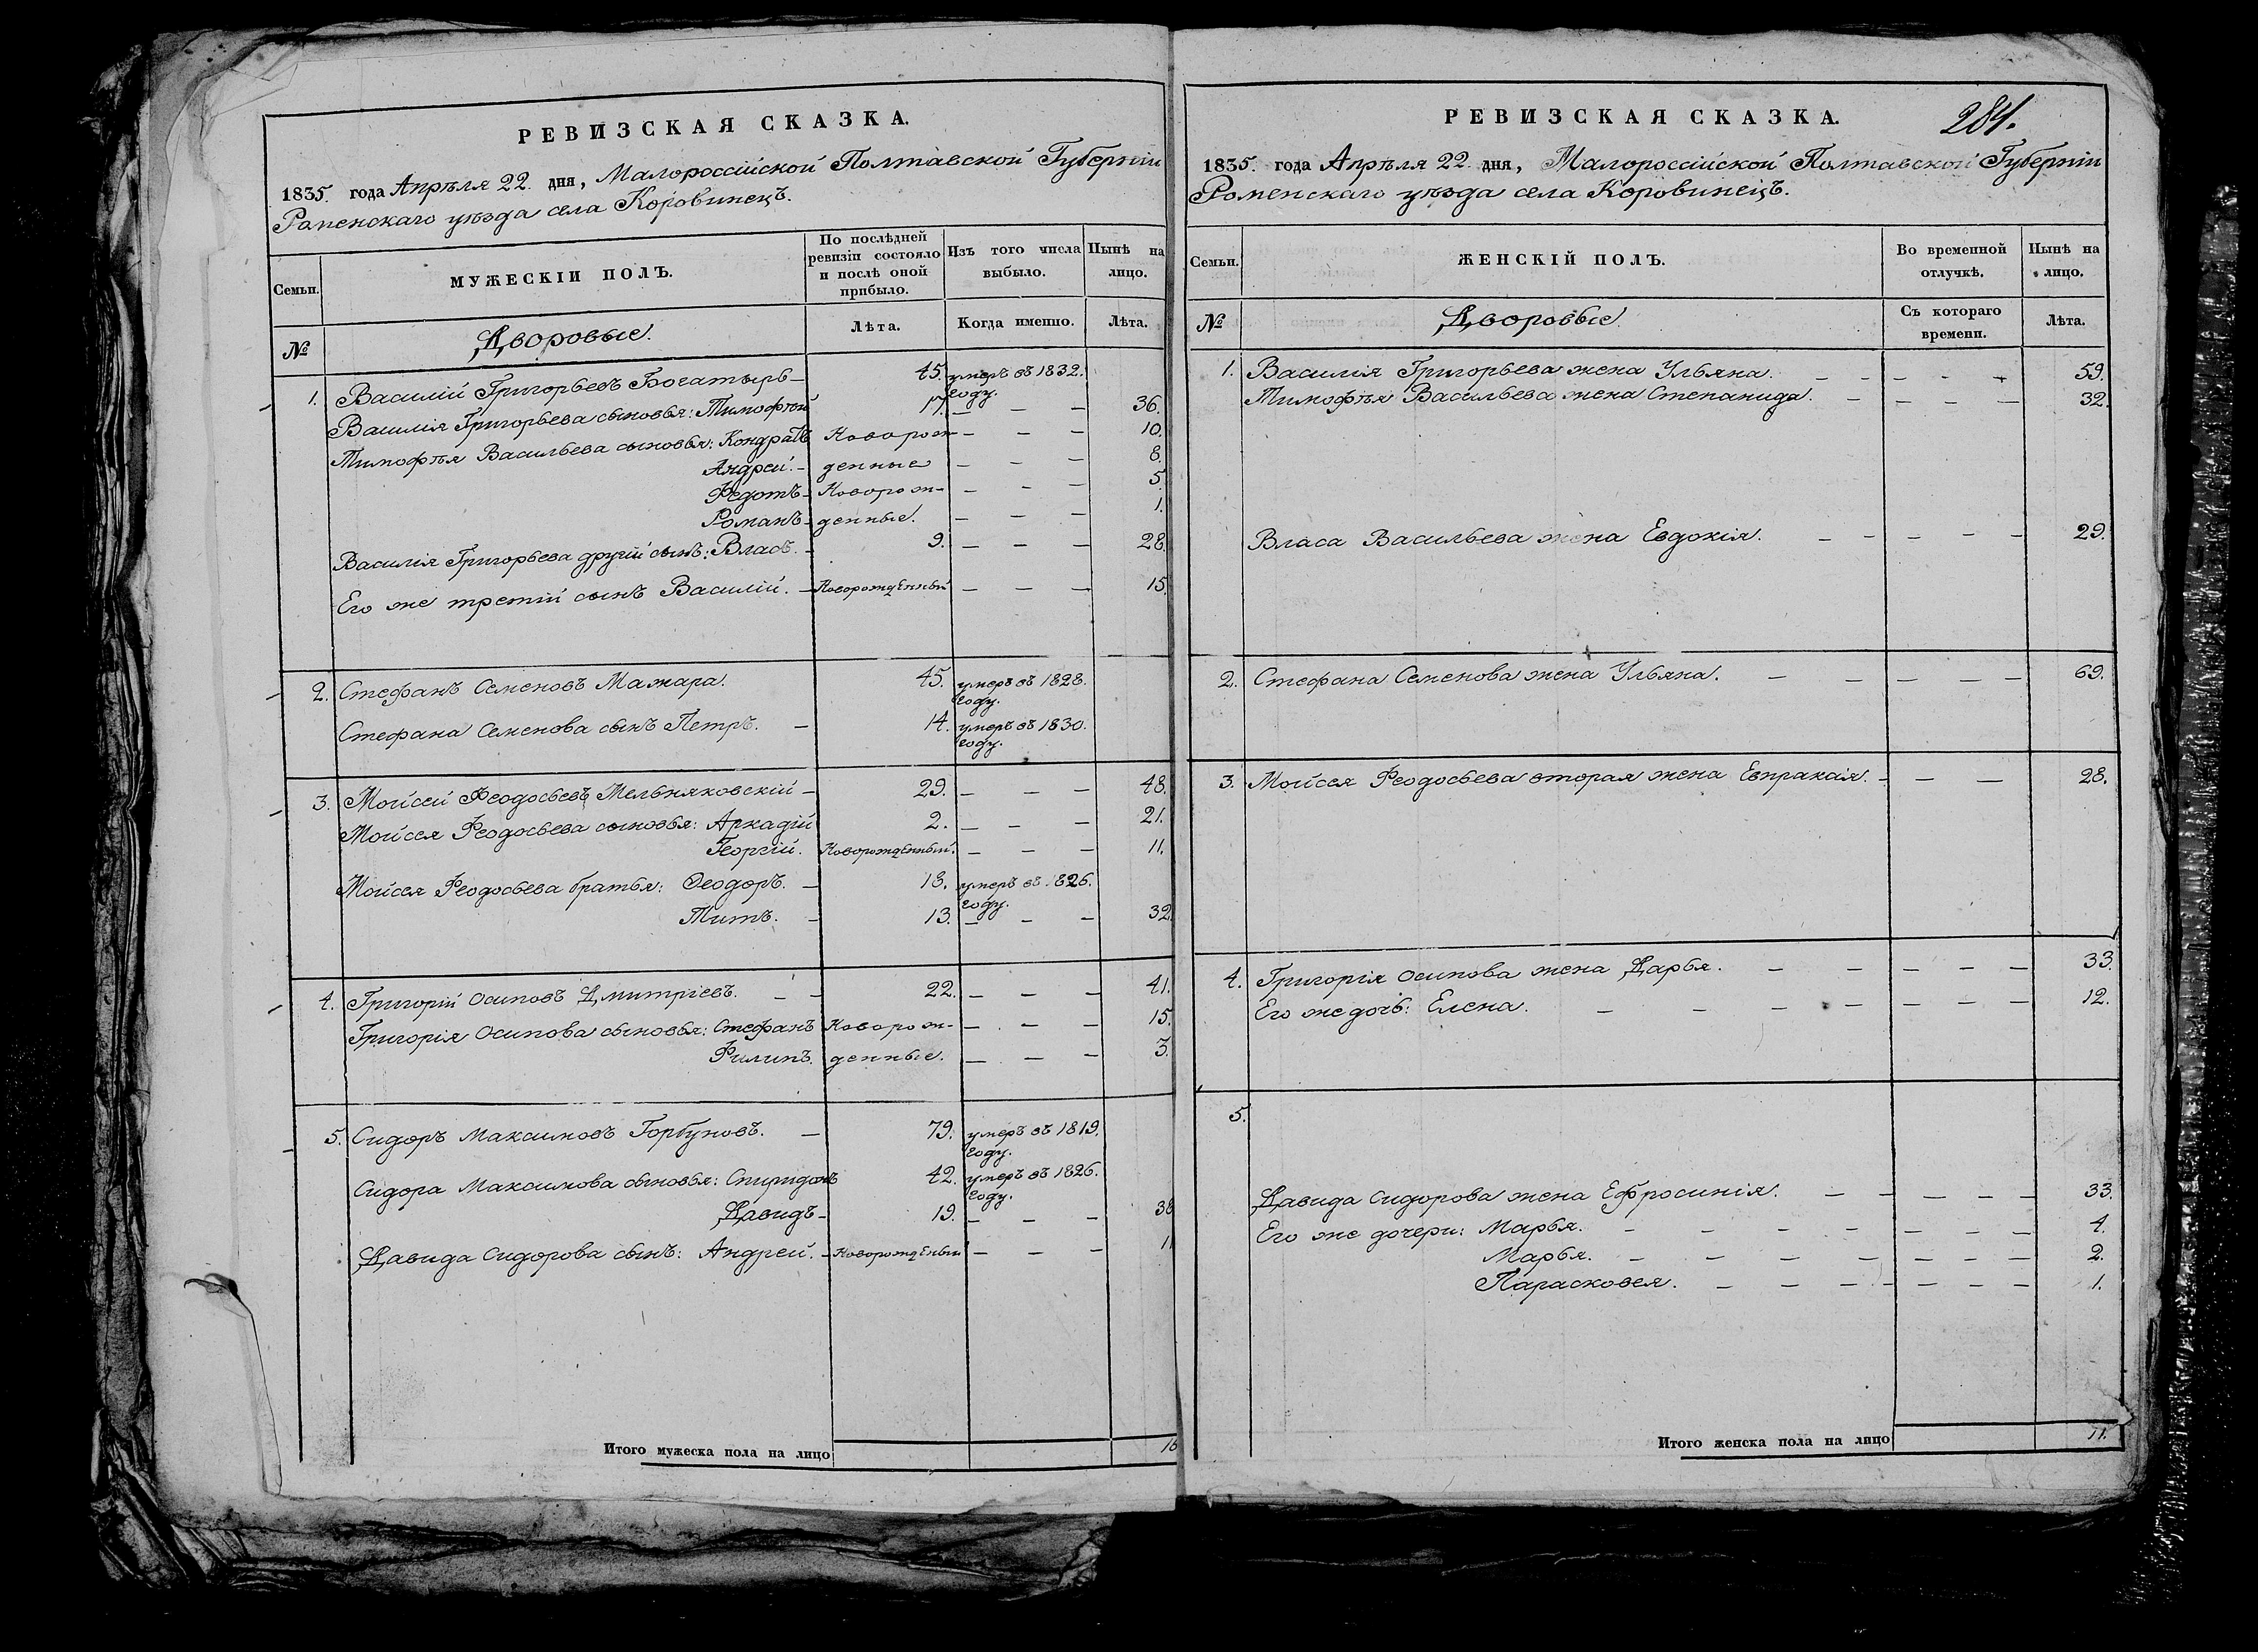 РЕВИЗСКАЯ СКАЗКА.
1835. года Апрѣля 22. дня, Малороссійской Полтавской Губерніи
Роменскаго уѣзда села Коровинецъ.
Семьи.
МУЖЕСКІЙ ПОЛЪ.
По послѣдней ревизіи состояло и послѣ оной прибыло.
Изъ того числа выбыло.
Нынѣ на лицо.
№ Дворовые. Лѣта. Когда именно. Лѣта.
1. Василій Григорьевъ Богатырь — 45. умеръ въ 1832. году.
Василія Григорьева сыновья: Тимофѣй 17. — — — 36.
Тимофѣя Васильева сыновья: Кондратъ Новорож- — — — 10.
Андрей. — денные — — — 8.
Федотъ — Новорож- — — — 5.
Романъ — денные. — — — 1.
Василія Григорьева другій сынъ: Власъ. — 9. — — — 28.
Его же третій сынъ Василій. — Новорожденный — — — 15.
2. Стефанъ Семеновъ Мажара. 45. умеръ въ 1828. году.
Стефана Семенова сынъ Петръ. — 14. умеръ въ 1830. году.
3. Мойсей Феодосьевъ Мельняковскій — 29. — — — 48.
Мойсея Феодосьева сыновья: Аркадій 2. — — — 21.
Георгій. Новорожденный. — — — 11.
Мойсея Феодосьева братья: Ѳеодоръ. — 18. умеръ въ 1826. году.
Титъ. — 13. — — — 32.
4. Григорій Осиповъ Дмитріевъ. — — 22. — — — 41.
Григорія Осипова сыновья: Стефанъ Новорож- — — — 15.
Филипъ. денные. — — — 3.
5. Сидоръ Максимовъ Горбуновъ. — 79. умеръ въ 1819. году.
Сидора Максимова сыновья: Спиридонъ 42. умеръ въ 1826. году.
Давидъ — 19. — — — 38
Давида Сидорова сынъ: Андрей. — Новорожденный — — — 11
Итого мужеска пола на лицо 16
РЕВИЗСКАЯ СКАЗКА.
284.
1835. года Апрѣля 22. дня, Малороссійской Полтавской Губерніи
Роменскаго уѣзда села Коровинецъ.
Семьи.
ЖЕНСКІЙ ПОЛЪ.
Во временной отлучкѣ.
Нынѣ на лицо.
№ Дворовые. Съ котораго времени. Лѣта.
1. Василія Григорьева жена Ульяна. — — — — — 59.
Тимофѣя Васильева жена Степанида. — — — — 32.
Власа Васильева жена Евдокія. — — — — — 29.
2. Стефана Семенова жена Ульяна. — — — — — 69.
3. Мойсея Феодосьева вторая жена Евпраксія. — — — 28.
4. Григорія Осипова жена Дарья. — — — — — 33.
Его же дочь: Елена. — — — — — — 12.
5.
Давида Сидорова жена Ефросинія. — — — — — 33.
Его же дочери: Марья. — — — — — — — 4.
Марья. — — — — — — — 2.
Парасковея. — — — — — — — 1.
Итого женска пола на лицо 11.